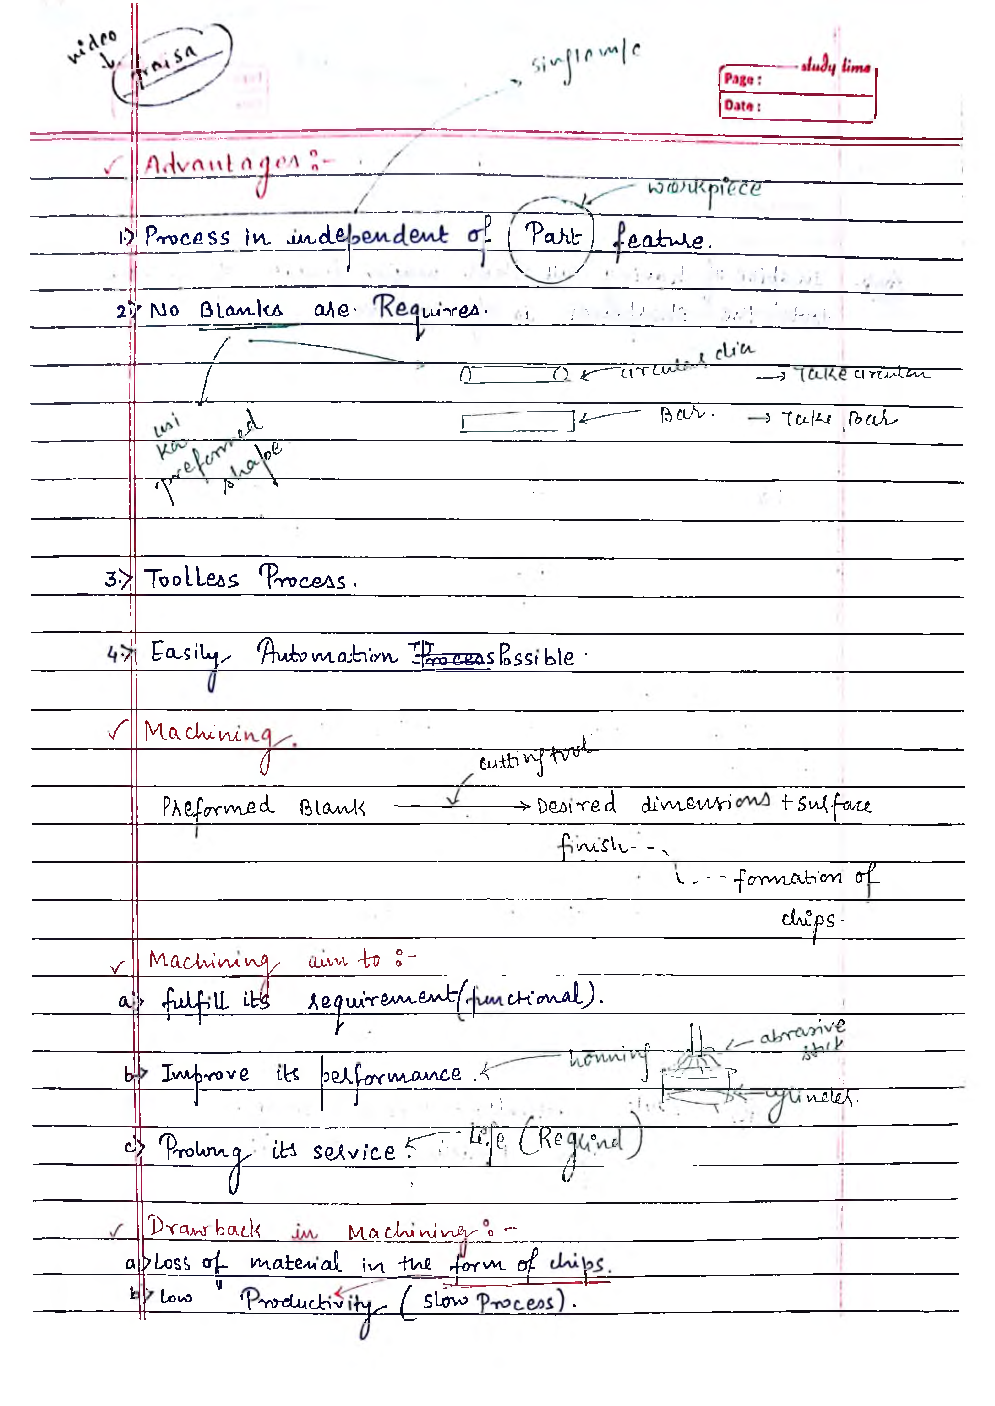 video
study time
Page :
Date :
Advantages :-
workpiece
1.> Process in independent of Part feature.
2.> No Blanks are Requires.
circular dia → Take circular
Bar. → Take Bar
preformed
shape
3.> Toolless Process.
4.> Easily Automation Process Possible.
Machining.
cutting tool
Preformed Blank → Desired dimensions + surface
finish
formation of
chips.
Machining aim to :-
a> fulfill its requirement (functional).
abrasive
stick
b> Improve its performance. honning
cylinder.
c> Prolong its service. Life (Regrind)
Drawback in Machining :-
a> Loss of material in the form of chips.
b> Low " Productivity (slow Process).